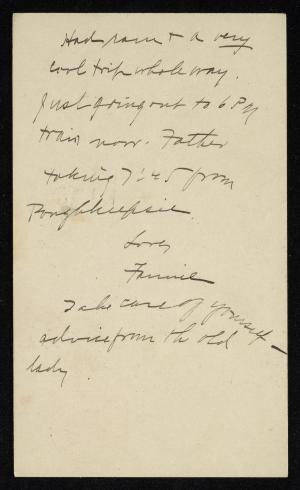 Had rain + a very
cool trip whole way.
Just going out to 6 P.M
train now. Father
taking 7:45 from
Poughkeepsie.
Love,
Fannie
Take care of yourself –
advice from th old
lady